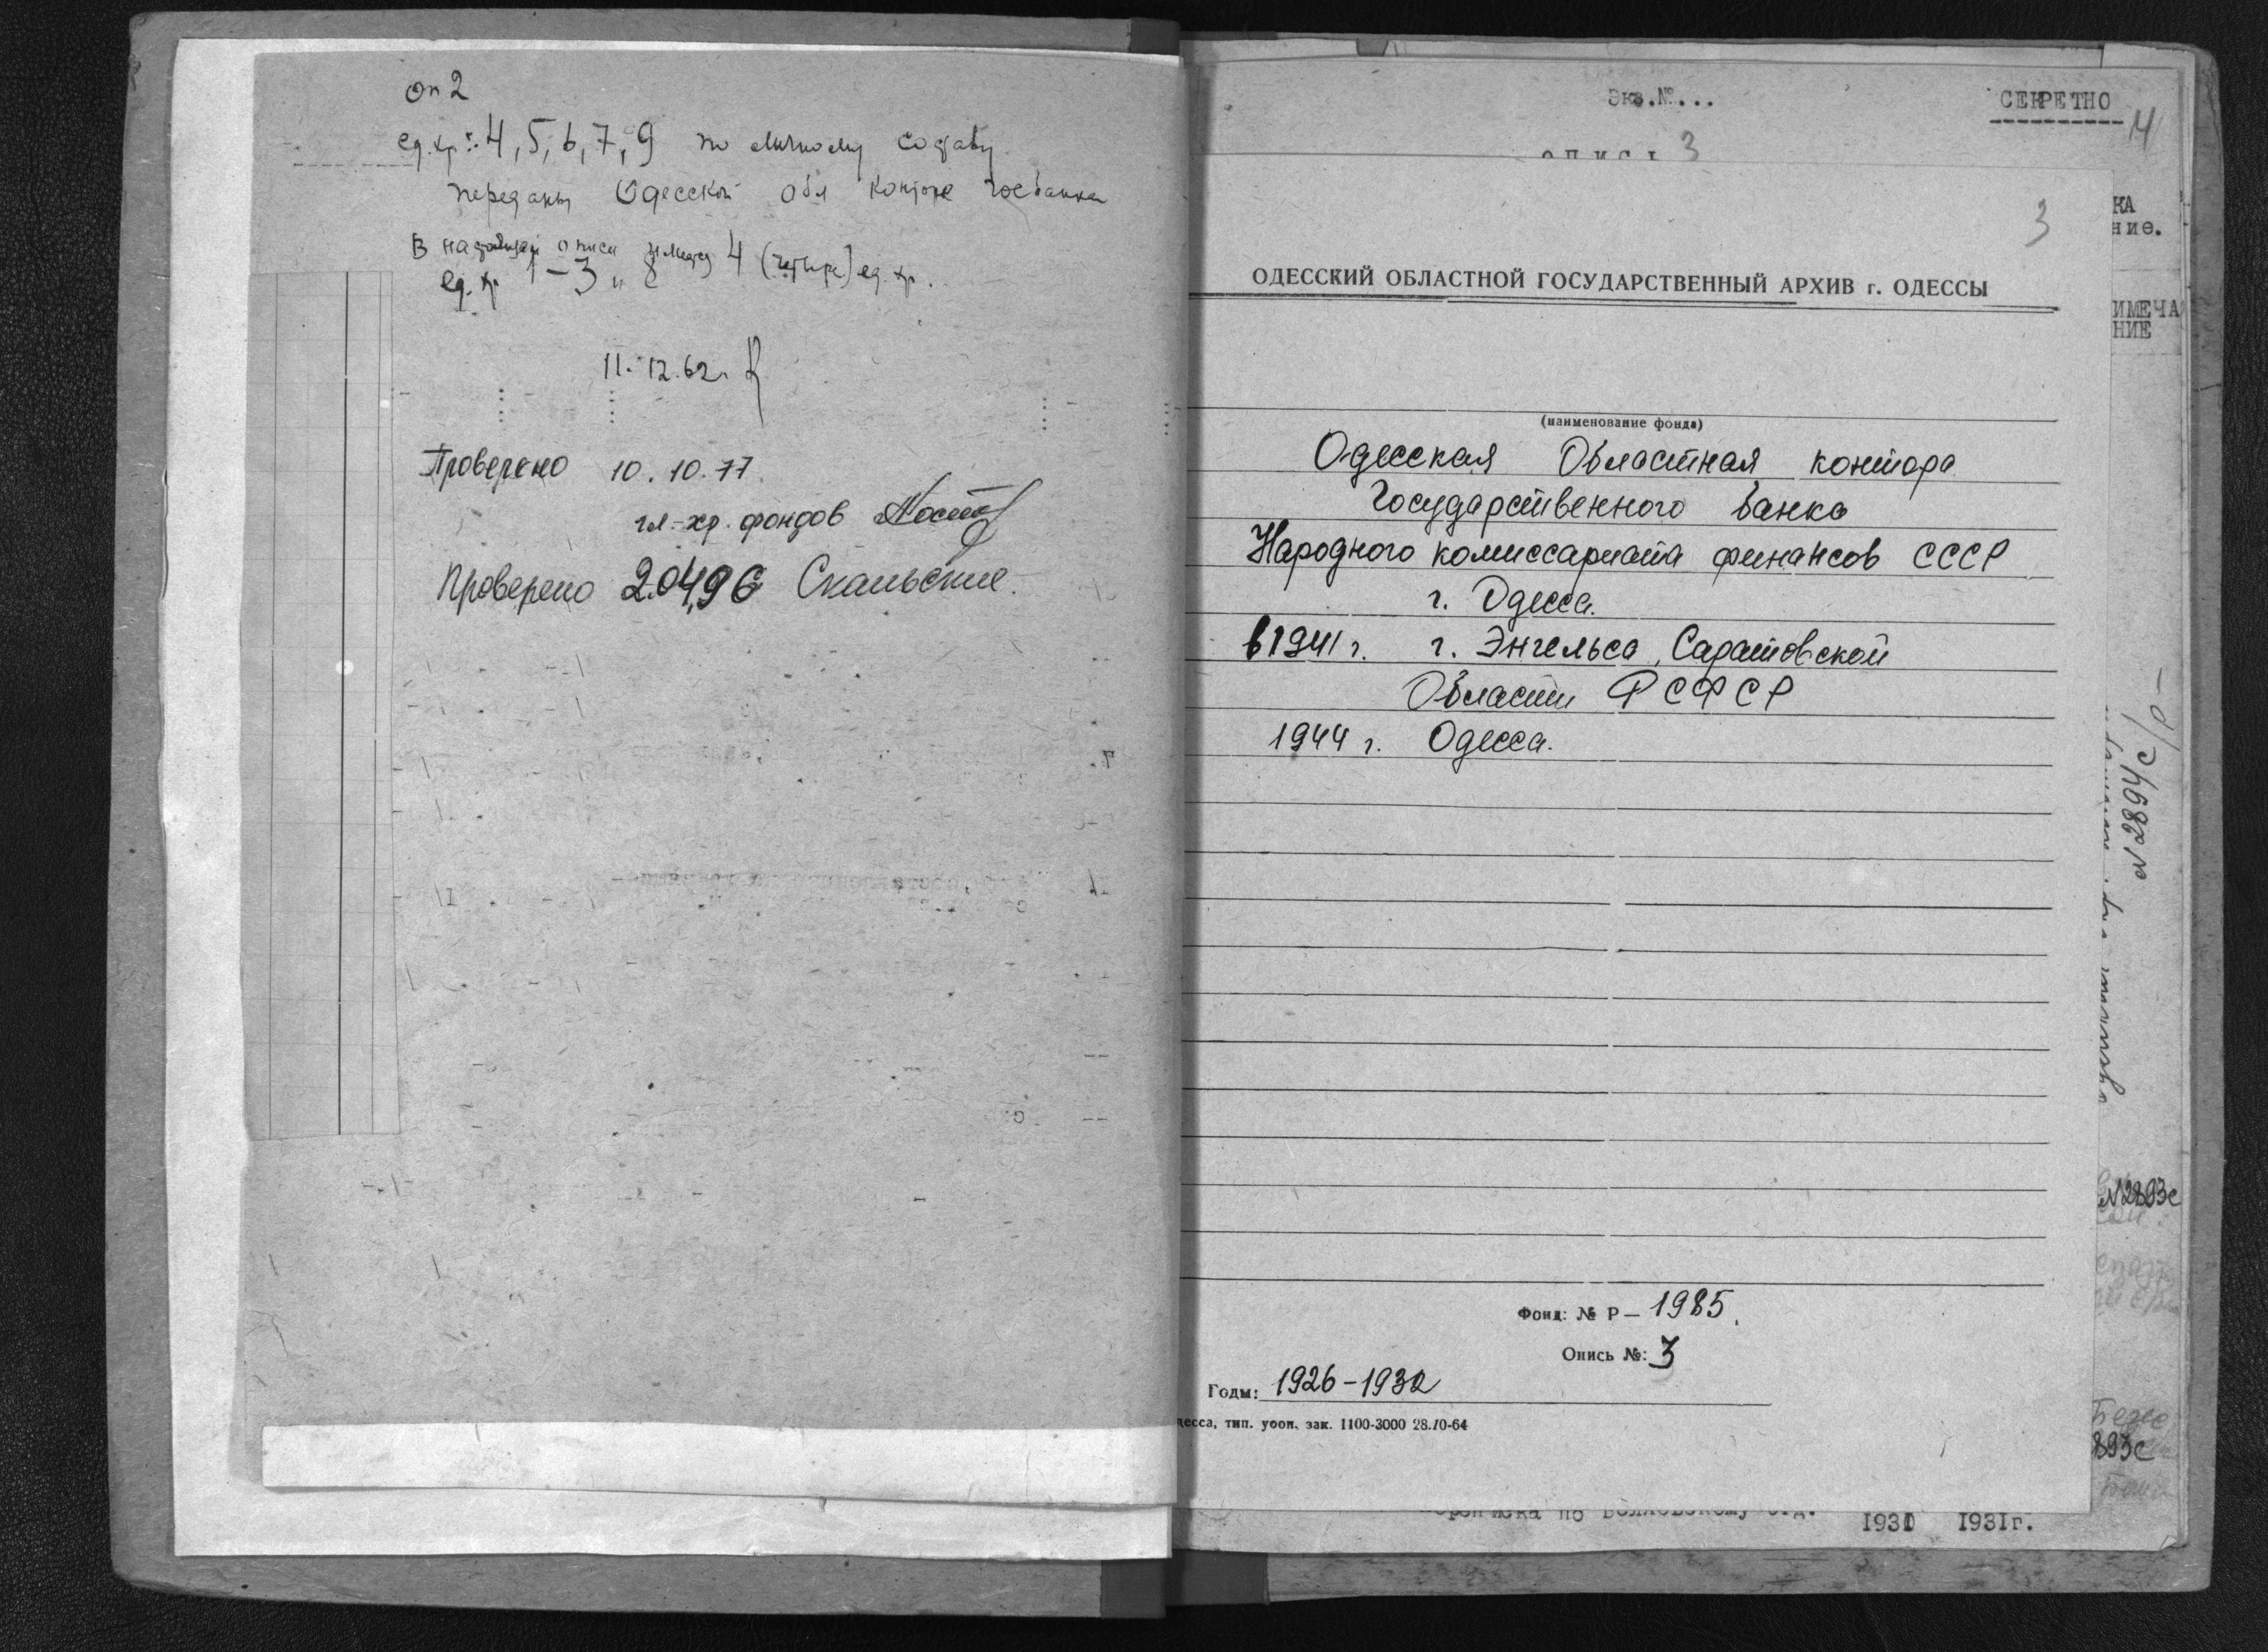 оп 2
ед. хр.: 4, 5, 6, 7, 9 по личному составу
переданы Одесской обл конторе Госбанка
В настоящей описи имеется 4 (четыре) ед. хр.
ед. хр. 1-3 и 8
11.12.62.
Проверено 10.10.77.
гл. хр. фондов
Проверено 2.04,96
Экз.№...
СЕКРЕТНО
4
опись 3
3
КА
ние.
ИМЕЧА
НИЕ
ОДЕССКИЙ ОБЛАСТНОЙ ГОСУДАРСТВЕННЫЙ АРХИВ г. ОДЕССЫ
(наименование фонда)
Одесская Областная контора
Государственного банка
Народного комиссариата финансов СССР
г. Одесса.
в 1941 г. г. Энгельса, Саратовской
Области РСФСР
1944 г. Одесса.
№ 2894с/
№2893с
893с
Фонд: № Р— 1985.
Опись №: 3
Годы: 1926-1932
десса, тип. уооп. зак. 1100-3000 28.10-64
1931 1931г.